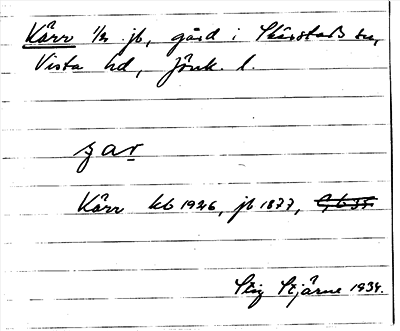 Kärr 1/2 jb, gård i Skärstads sn,
Vista hd, Jönk. l.
ɟar
Kärr kb 1926, jb 1877,
Stig Stjärne 1934.